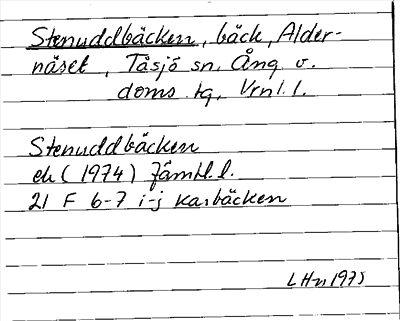 Stenuddbäcken, bäck, Alder-
näset, Tåsjö sn. Ång. v.
doms. tg, Vrnl. l.
Stenuddbäcken
ek (1974) Jämtl. l.
21 F 6-7 i-j Karbäcken
LHn 1975